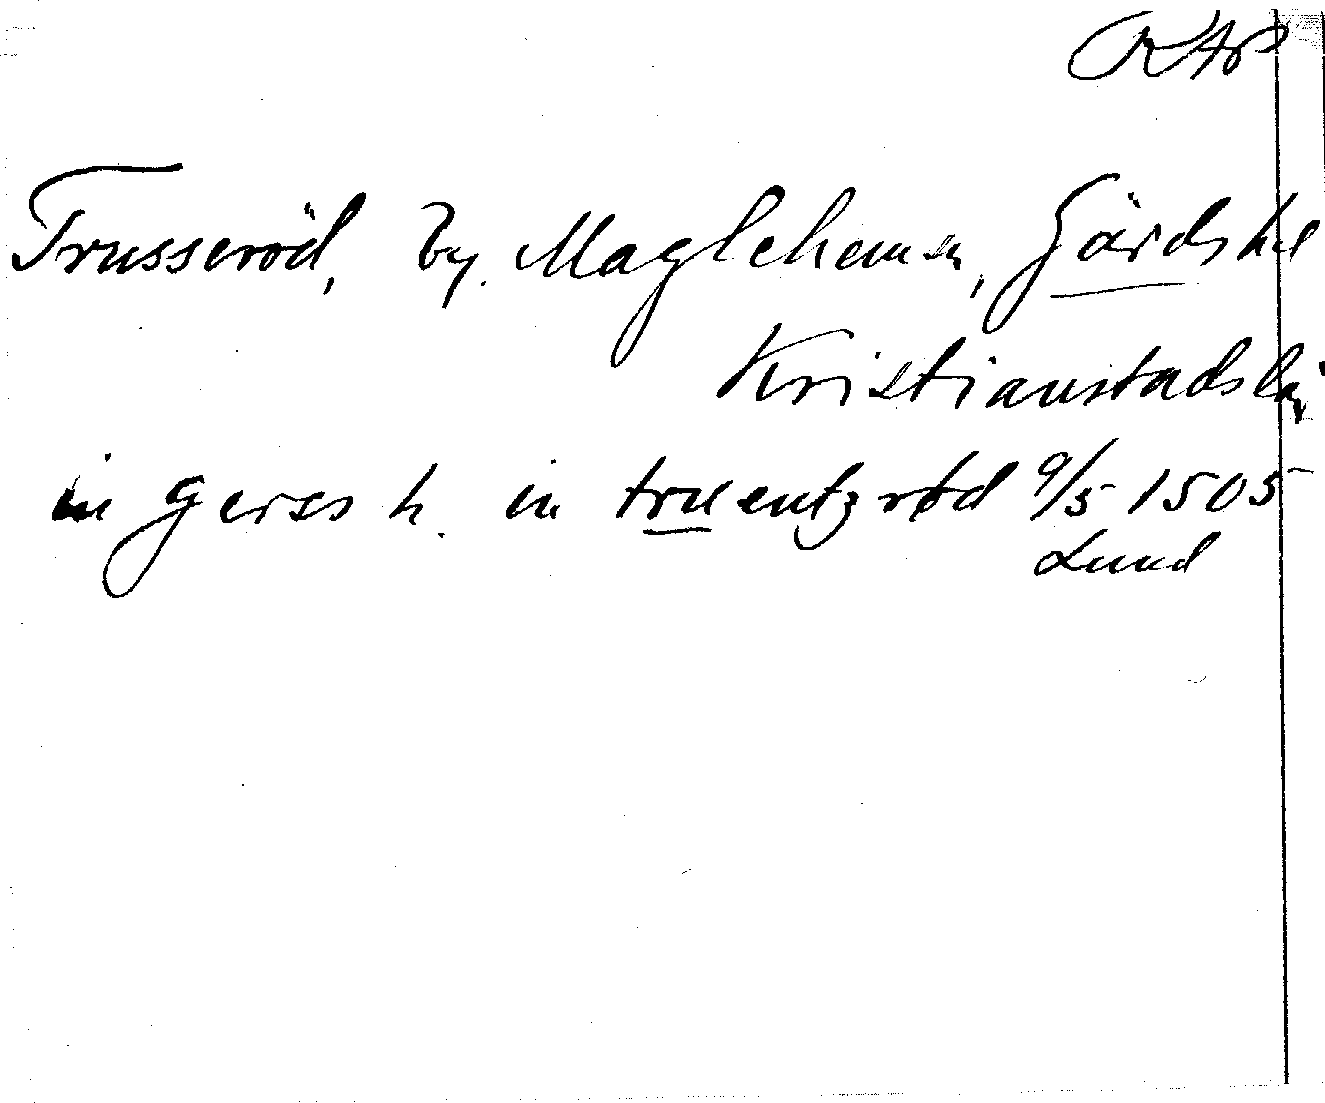 RAP
Trusseröd, by. Maglehem sn, Gärds hd
Kristianstads län
in gerss h. in truentzrød 9/5 1505
Lund